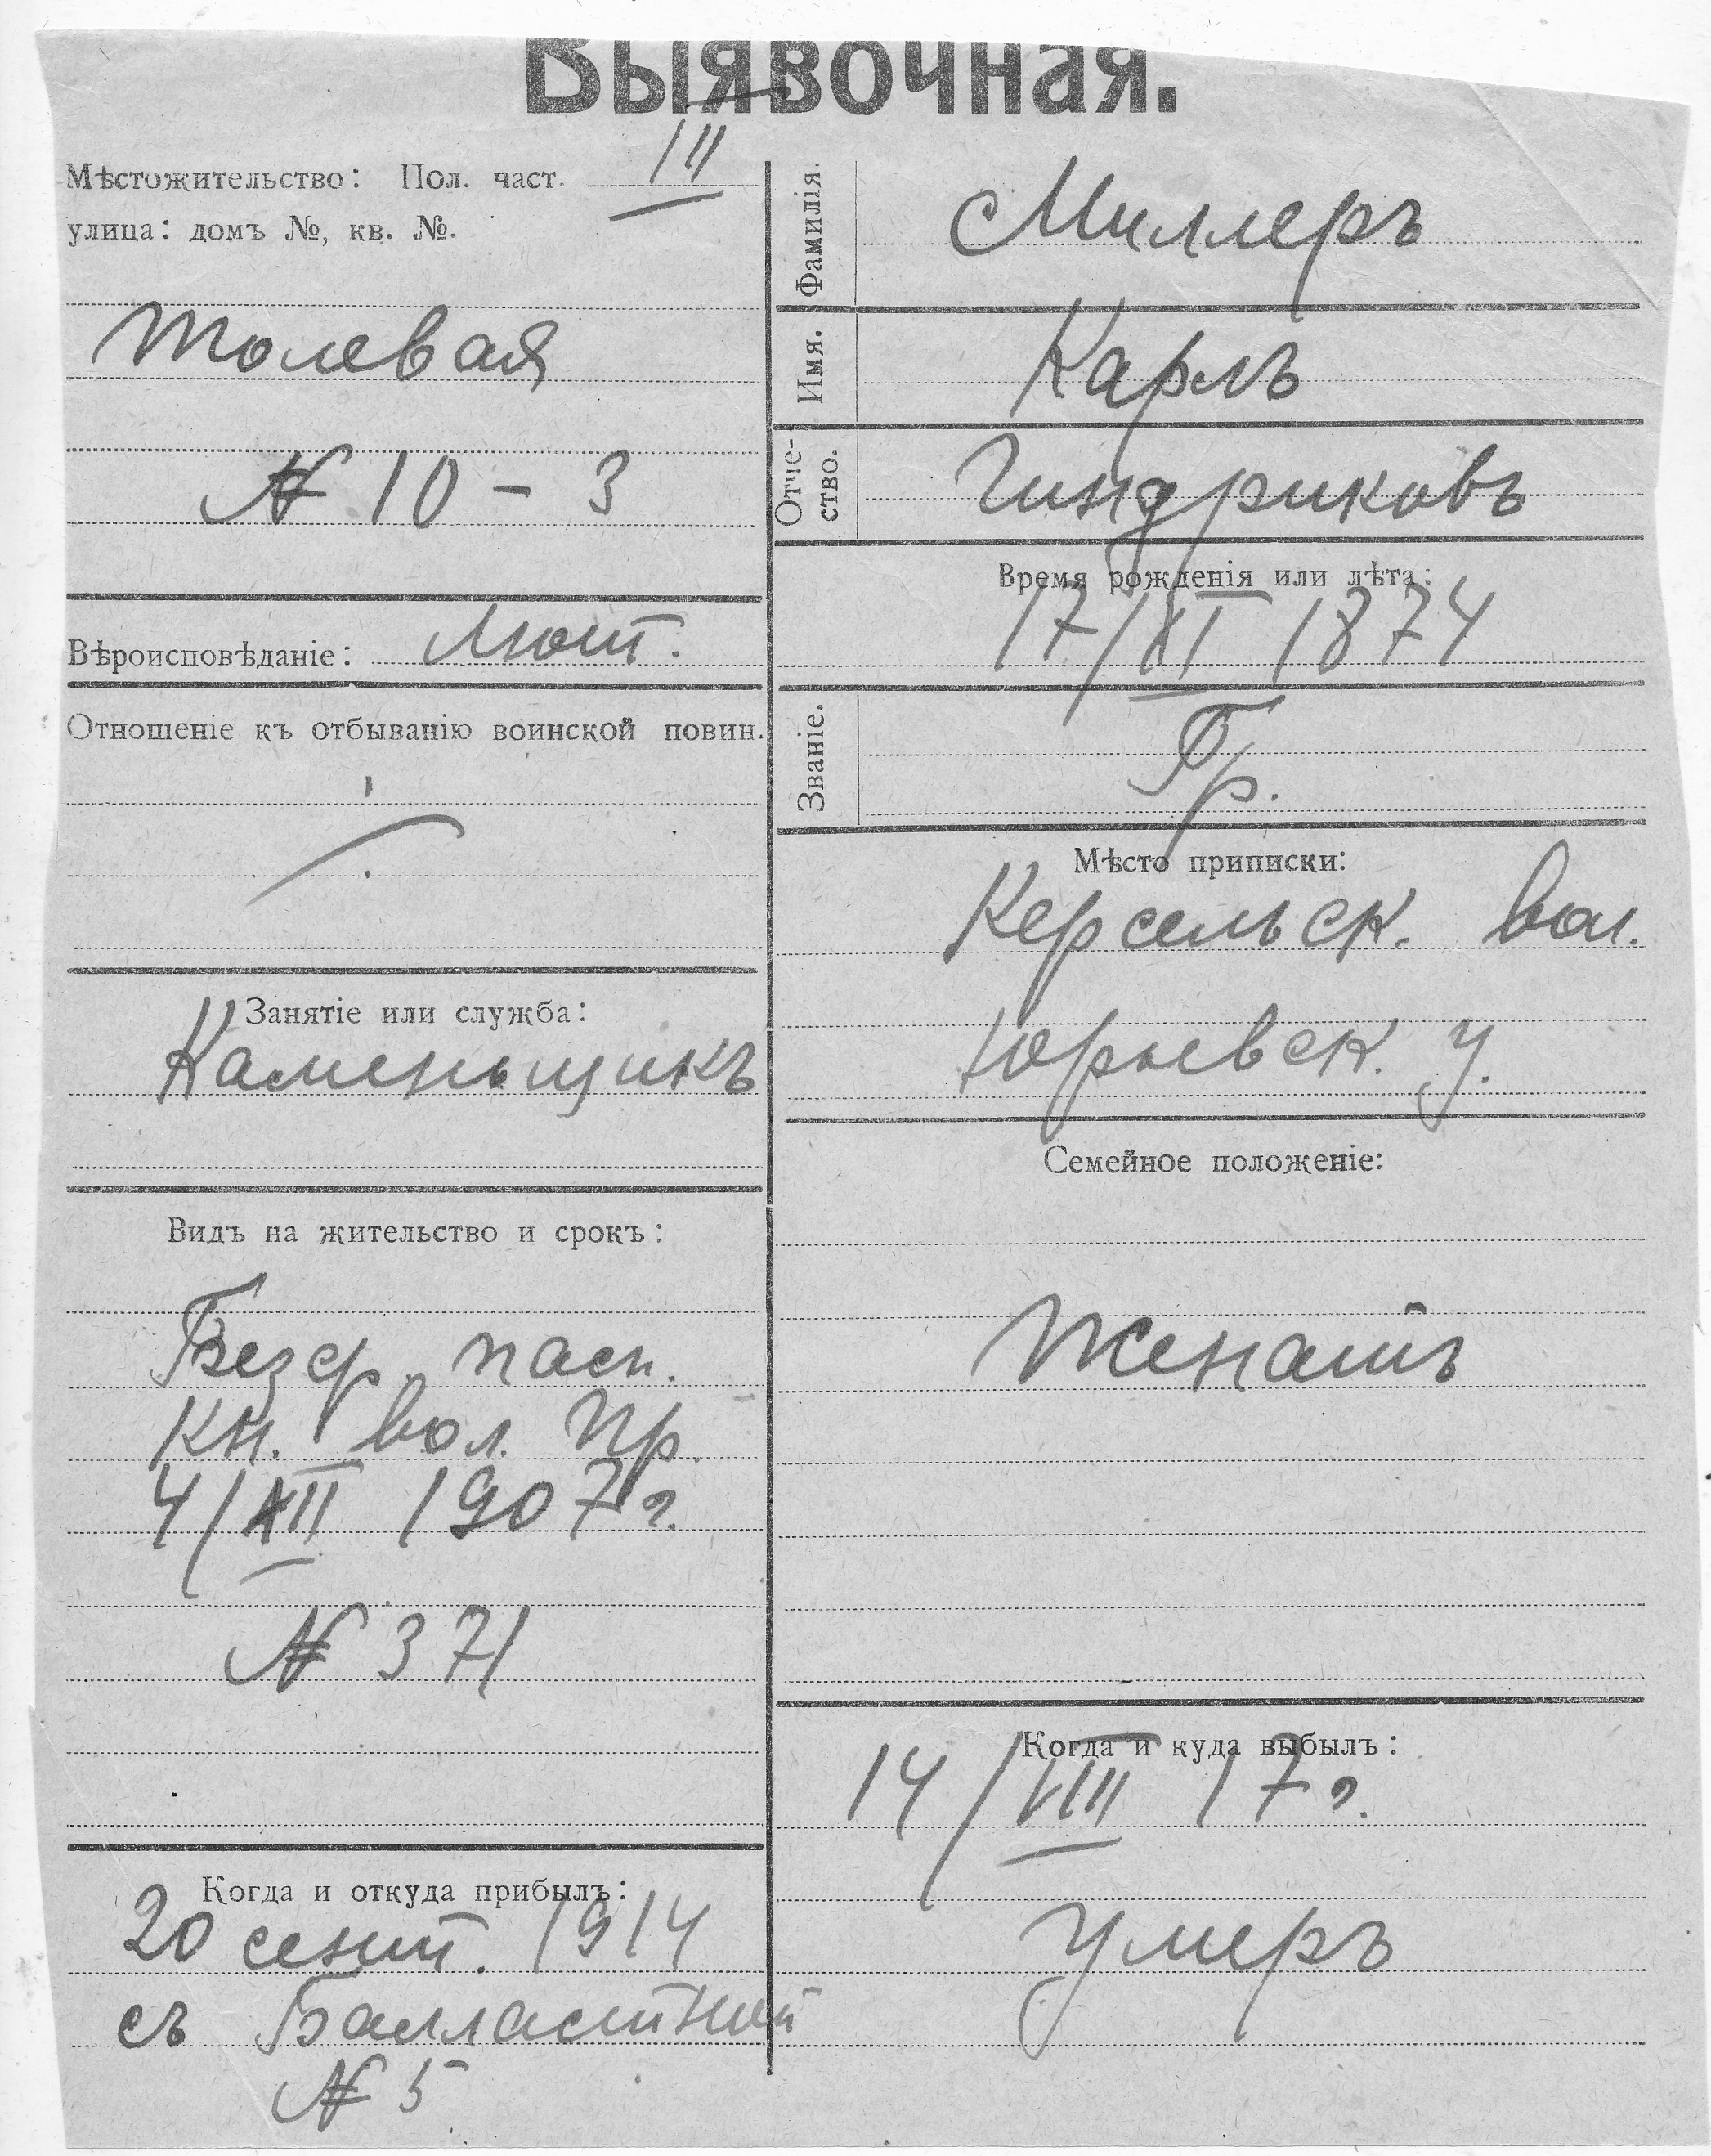 Выявочная.
Мѣстожительство: Пол. част. III
улица: домъ №, кв. №.
Толевая
№ 10 - 3
Вѣроисповѣданіе: Лют.
Отношеніе къ отбыванію воинской повин.
Занятіе или служба:
Каменьщикъ
Видъ на жительство и срокъ:
Безср. пасп.
кн. вол. Пр.
4/XII 1907 г.
№ 371
Когда и откуда прибылъ:
20 сент. 1914
съ Балластной
№ 5
Фамилія. Миллеръ
Имя. Карлъ
Отче-
ство. Гиндриковъ
Время рожденія или лѣта:
17/XI 1874
Званіе. Гр.
Мѣсто приписки:
Керсельск. вол.
Юрьевск. у.
Семейное положеніе:
Женатъ
Когда и куда выбылъ:
14/VIII 17 г.
Умеръ